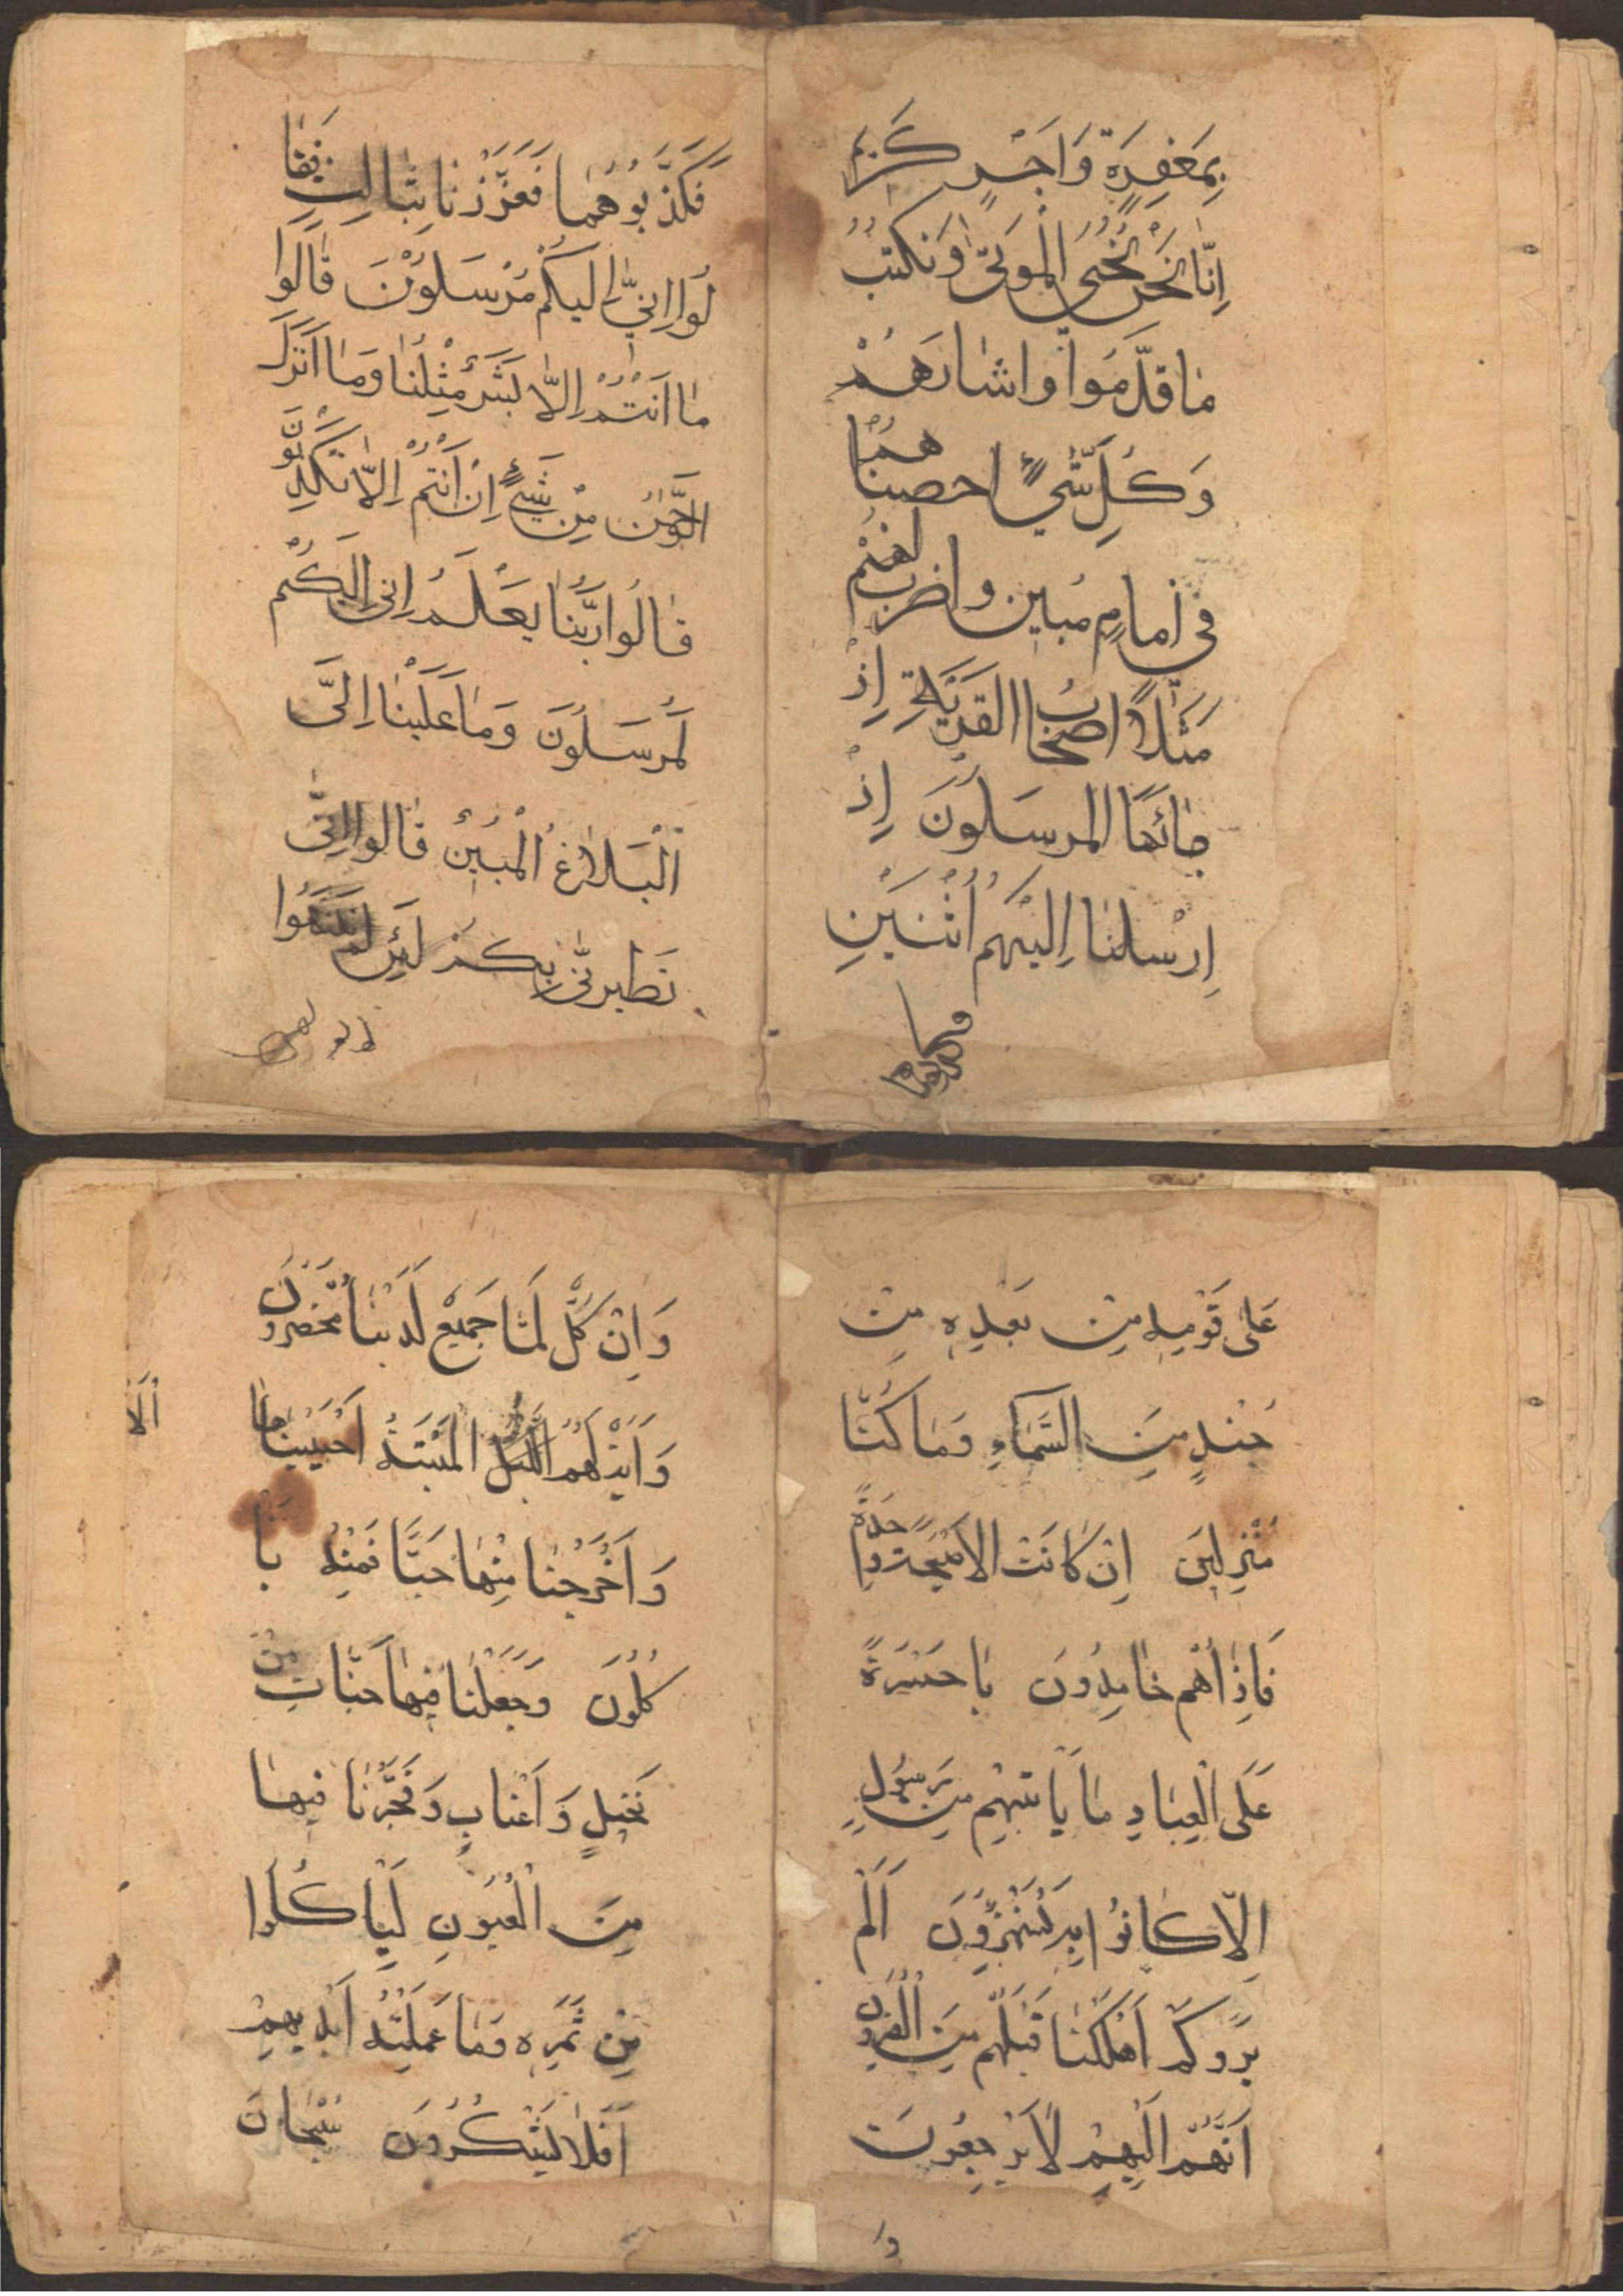 بِمَغفِرَةٍ وَاَجْرٍ كَرِيم
اِنّا نَحْنُ نُحْيِي الْمَوتىٰ وَنَكتُبُ
مٰا قَدَّمُوا وَاٰثٰارَهُمْ
وَكُلِّ شَيْءٍ احصينٰاهُ
في اِمامٍ مُبين واضرِب لَهُمْ
مَثَلاً اصحٰابُ القَرْيَةِ اِذْ
جٰائَهَا المرسَلُونَ اِذْ
اِرْسلنٰا اِلَيْهِمُ اثْنَيْنِ
فَكَذَّبُوهُمٰا فَعَزَّزْنٰا بِثٰالِثٍ فَقٰا
لُوا اِنّٰي اِلَيكُمْ مُرْسَلُوْنَ قٰالُوا
مٰا اَنْتُمْ اِلّٰا بَشَرٌ مِثْلُنٰا وَمٰا اَنْزَلَ
الرَّحْمٰنُ مِنْ شَيْءٍ اِنْ اَنْتُمْ اِلّٰا تَكْذِبُوْنَ
قٰالُوا رَبُّنٰا يَعْلَمُ اِني اِلَيكُمْ
لَمُرسَلُونَ وَمٰا عَلَيْنٰا اِلَّى
اَلْبَلٰاغُ الْمُبينُ قٰالوا اِنّي
تَطَيرنّٰى بِكُمْ لَئِن لَم تَنتَهُوا
عَلىٰ قَوْمِهِ مِنْ بَعْدِهِ مِنْ
جُنْدٍ مِنَ السَّمٰاءِ وَمٰا كُنّٰا
مُنْزِلينَ اِنْ كٰانَتْ الا صَيْحَةً وٰاحِدَةً
فَاِذٰا هُمْ خٰامِدُونَ يٰا حَسْرَةً
عَلَى الْعِبٰادِ مٰا يَأتيهِمْ مِن رَسُولٍ
اِلّٰا كٰانُوا بِهِ يَسْتَهْزِؤُنَ اَلَمْ
يَرَوْ كَمْ اَهْلَكْنٰا قَبْلَهُم مِنَ الْقُرُونِ
اَنَّهُمْ اِلَيْهِمْ لٰا يَرْجِعُونَ
وَا
وَاِنْ كُلٌّ لَمّٰا جَميْعٌ لَدَيْنٰا مُحْضَرُونَ
وَاٰيَةٌ لَهُمُ الْمَيْتَةُ اَحْيَيْنٰاهٰا
وَاَخْرَجْنٰا مِنْهٰا حَبًّا فَمِنْهُ يَأ
كُلُونَ وَجَعَلْنٰا فيهٰا جَنّٰاتٍ مِنْ
نَخيلٍ وَاَعْنٰابٍ وَفَجَّرْنٰا فيهٰا
مِنَ الْعُيُونِ لِيَأكُلُوا
مِنْ ثَمَرِهِ وَمٰا عَمِلَتْهُ اَيْديهِمْ
اَفَلٰا يَشْكُرُونَ سُبْحٰانَ